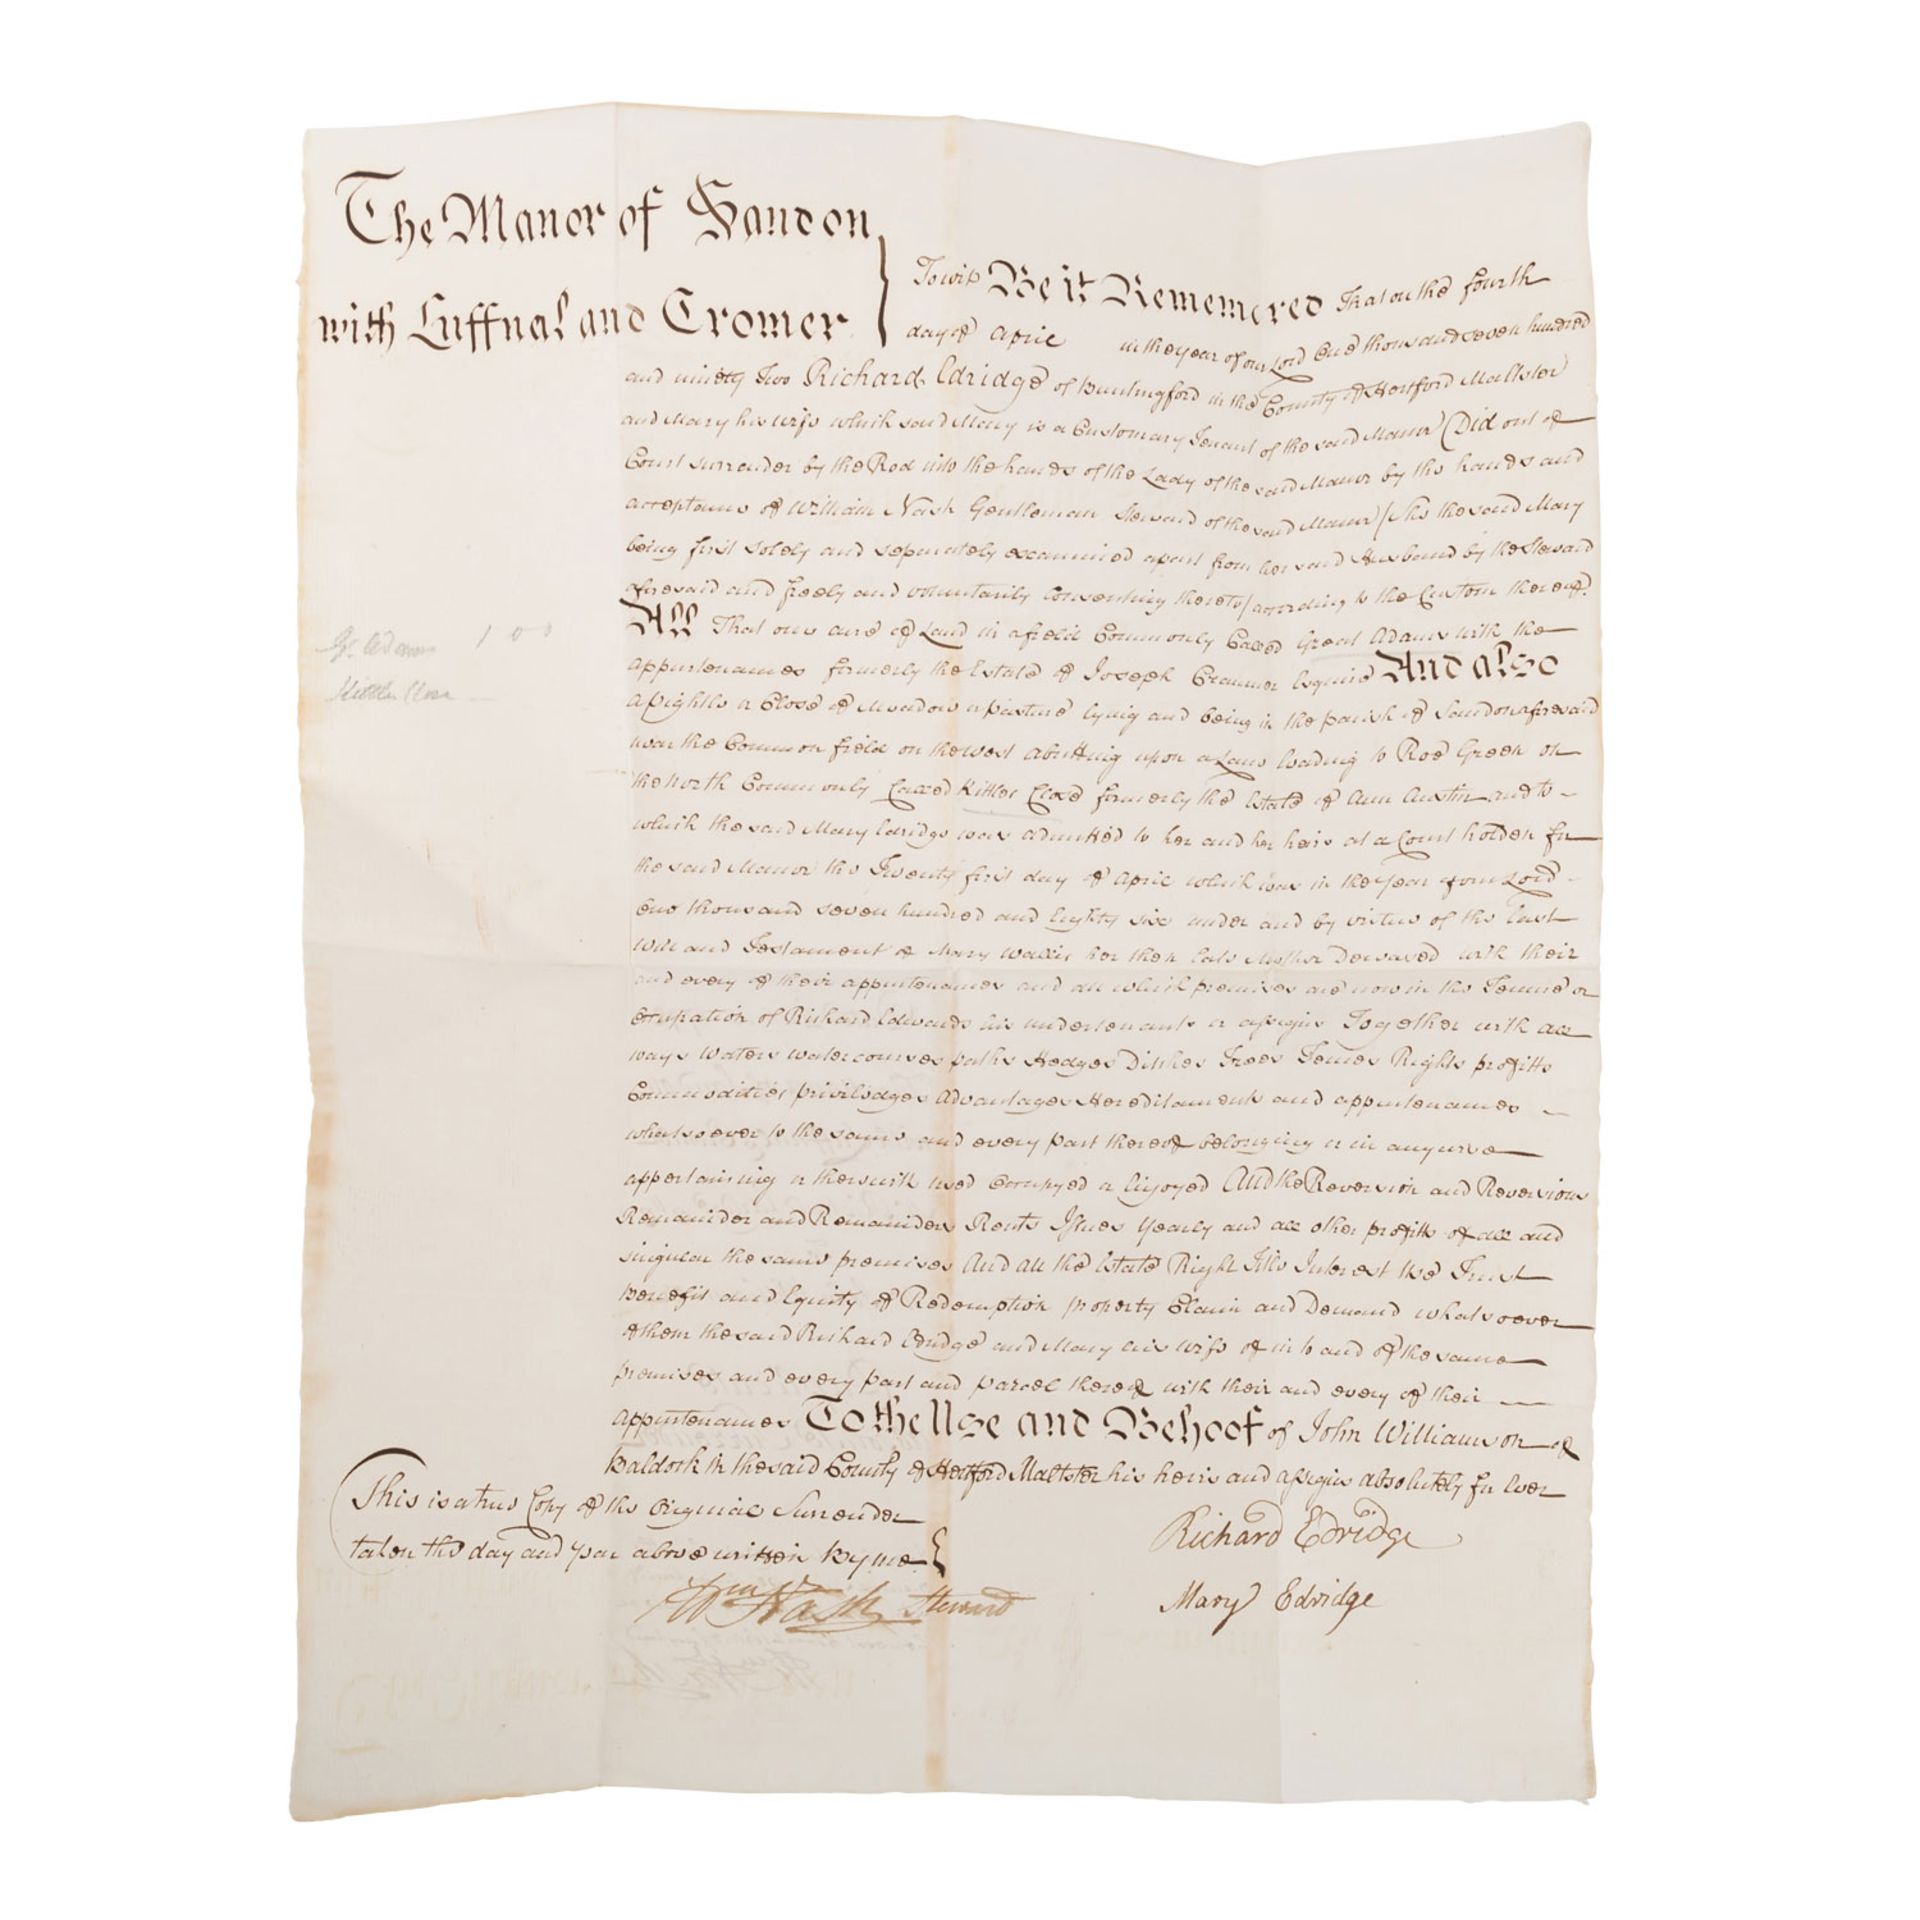 The Manor of Sandon
with Luffnal and Cromer
To wit Be it Rememered That on the fourth
day of April in the year of our Lord One thousand seven hundred
and ninety Two Richard Edridge of Buntingford in the County of Hertford Maltster
and Mary his wife which said Mary is a Customary Tenant of the said Manor (Did out of
Court surrender by the Rod into the hands of the Lady of the said Manor by the hands and
acceptance of William Nash Gentleman Steward of the said Manor / She the said Mary
being first solely and separately examined apart from her said Husband by the Steward
aforesaid and freely and voluntarily Consenting thereto / according to the Custom thereof
All That one acre of Land in a field Commonly Called Great Adams with the
appurtenances formerly the Estate of Joseph Cranmer Esquire And also
a Pightle or Close of Meadow or pasture lying and being in the parish of Sandon aforesaid
near the Common field on the west abutting upon a Lane leading to Roe Green on
the North Commonly Called Kittles Close formerly the Estate of Ann Austin and to
which the said Mary Edridge was admitted to her and her heirs at a Court holden for
the said Manor the Twenty first day of April which was in the Year of our Lord
One thousand seven hundred and Eighty six under and by virtue of the Last
Will and Testament of Mary Wallis her then late Mother Deceased with their
and every of their appurtenances and all which premises are now in the Tenure or
Occupation of Richard Edwards his undertenants or assigns Together with all
ways Waters watercourses paths Hedges Ditches Trees Fences Rights profitts
Commodities priviledges Advantages Hereditaments and appurtenances
whatsoever to the same and every part thereof belonging or in anywise
appertaining or therewith used Occupyed or Enjoyed And the Reversion and Reversions
Remainder and Remainders Rents Issues Yearly and all other profitts of all and
singular the same premises And all the Estate Right Title Interest Use Trust
Benefit and Equity of Redemption property Claim and Demand whatsoever
of them the said Richard Edridge and Mary his wife of in to and of the same
premises and every part and parcel thereof with their and every of their
appurtenances To the Use and Behoof of John Williamson of
Baldock in the said County of Hertford Maltster his heirs and assigns absolutely for Ever
Gt. Adams 1 0 0
Kittles Close
This is a true Copy of the Original Surrender
taken the day and year above written By me
Wm Nash Steward
Richard Edridge
Mary Edridge